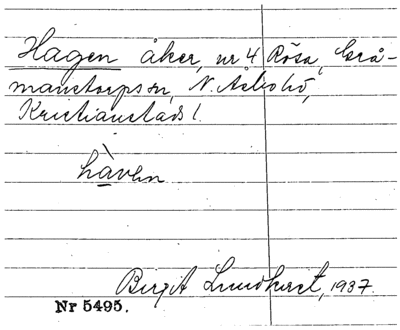 Hagen åker, nr 4 Rösa, Grå-
manstorps sn, N. Åsbo hd,
Kristianstads l.
hàvεn
Birgit Lundqvist, 1937.
Nr 5495.